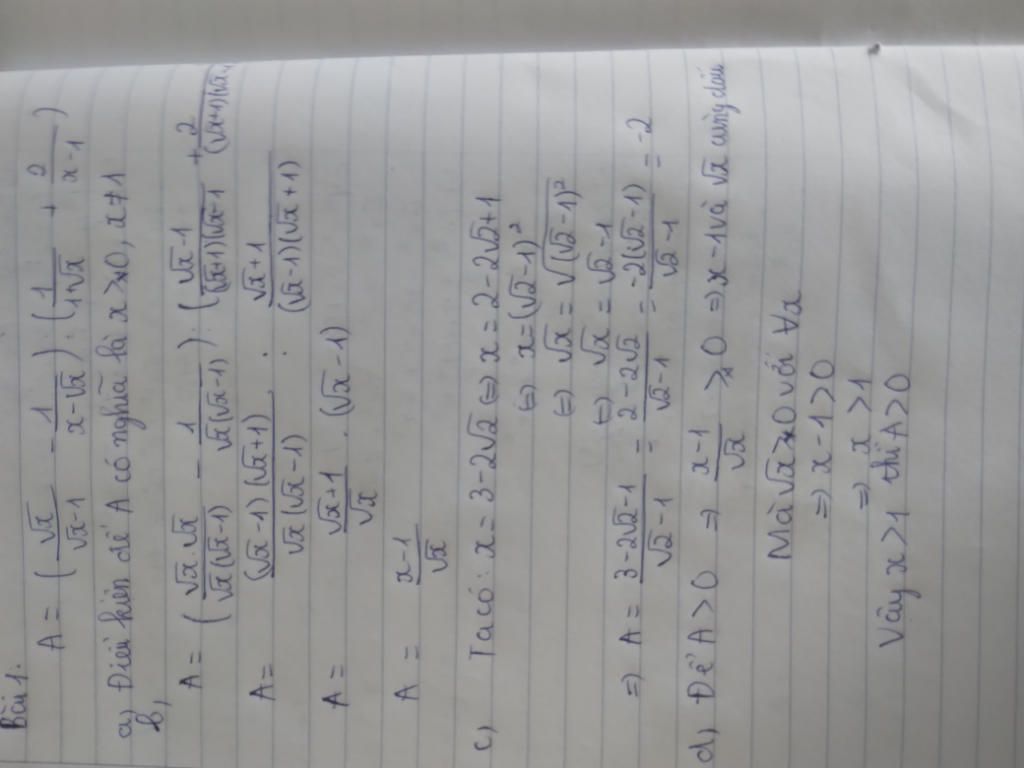 Bài 1:
A = ( √x / √x-1 - 1 / x-√x ) : ( 1 / 1+√x + 2 / x-1 )
a) Điều kiện để A có nghĩa là x > 0, x ≠ 1
b)
A = ( √x . √x / √x(√x-1) - 1 / √x(√x-1) ) : ( √x-1 / (√x+1)(√x-1) + 2 / (√x+1)(√x-1
A = (√x-1)(√x+1) / √x(√x-1) : √x+1 / (√x-1)(√x+1)
A = √x+1 / √x . (√x-1)
A = x-1 / √x
c) Ta có: x = 3-2√2 ⇔ x = 2-2√2+1
⇔ x = (√2-1)²
⇔ √x = √(√2-1)²
⇔ √x = √2-1
⇒ A = 3-2√2-1 / √2-1 = 2-2√2 / √2-1 = -2(√2-1) / √2-1 = -2
d) Để A > 0 ⇒ x-1 / √x > 0 ⇒ x-1 và √x cùng dấu
Mà √x > 0 với ∀x
⇒ x-1 > 0
⇒ x > 1
Vậy x > 1 thì A > 0